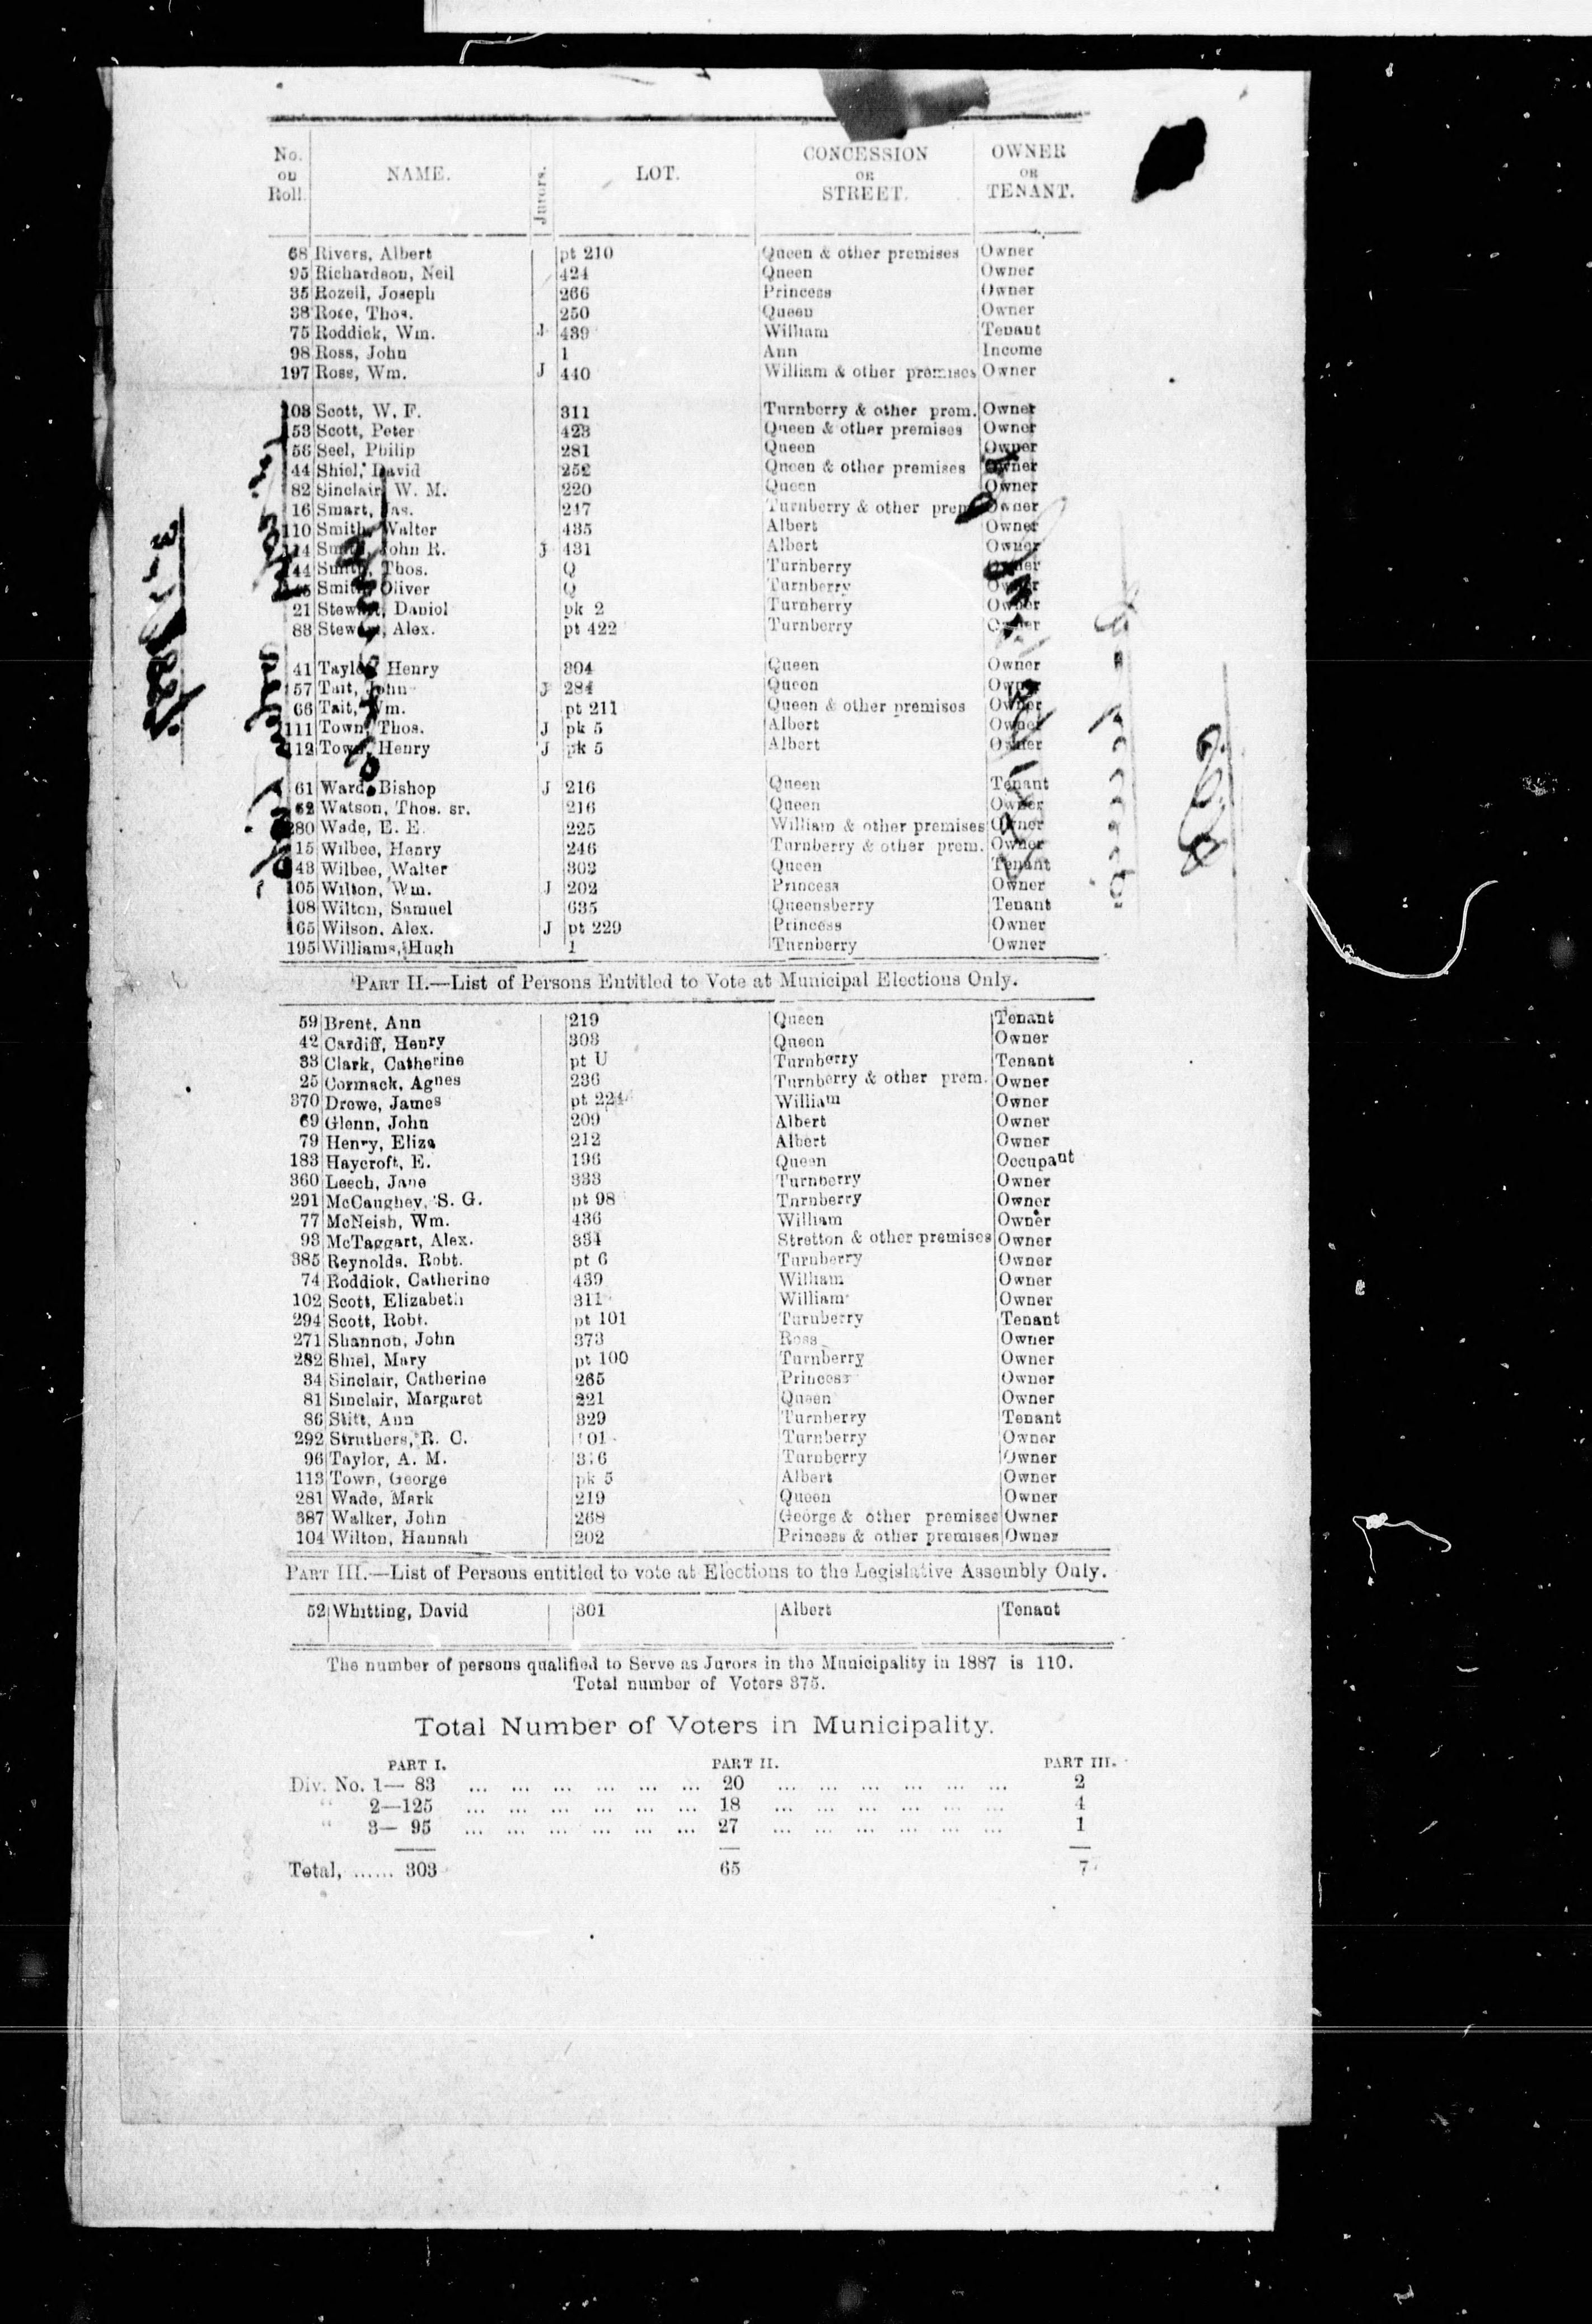 No. on Roll. NAME. Jurors. LOT. CONCESSION OR STREET. OWNER OR TENANT.
68 Rivers, Albert pt 210 Queen & other premises Owner
95 Richardson, Neil 424 Queen Owner
35 Rozell, Joseph 266 Princess Owner
38 Rose, Thos. 250 Queen Owner
75 Roddick, Wm. J 439 William Tenant
98 Ross, John 1 Ann Income
197 Ross, Wm. J 440 William & other premises Owner
103 Scott, W. F. 311 Turnberry & other prem. Owner
53 Scott, Peter 423 Queen & other premises Owner
56 Seel, Philip 281 Queen Owner
44 Shiel, David 252 Queen & other premises Owner
82 Sinclair, W. M. 220 Queen Owner
16 Smart, Jas. 247 Turnberry & other prem Owner
110 Smith, Walter 435 Albert Owner
114 Smith, John R. J 431 Albert Owner
44 Smith, Thos. Q Turnberry Owner
Smith, Oliver Q Turnberry Owner
21 Stewart, Daniel pk 2 Turnberry Owner
83 Stewart, Alex. pt 422 Turnberry Owner
41 Taylor, Henry 304 Queen Owner
57 Tait, John J 284 Queen Owner
66 Tait, Wm. pt 211 Queen & other premises Owner
111 Town, Thos. J pk 5 Albert Owner
112 Town, Henry J pk 5 Albert Owner
61 Ward, Bishop J 216 Queen Tenant
62 Watson, Thos. sr. 216 Queen Owner
280 Wade, E. E. 225 William & other premises Owner
15 Wilbee, Henry 246 Turnberry & other prem. Owner
43 Wilbee, Walter 303 Queen Tenant
105 Wilton, Wm. J 202 Princess Owner
108 Wilton, Samuel 635 Queensberry Tenant
165 Wilson. Alex. J pt 229 Princess Owner
195 Williams, Hugh 1 Turnberry Owner
PART II.—List of Persons Entitled to Vote at Municipal Elections Only.
59 Brent, Ann 219 Queen Tenant
42 Cardiff, Henry 303 Queen Owner
33 Clark, Catherine pt U Turnberry Tenant
25 Cormack, Agnes 236 Turnberry & other prem. Owner
370 Drewe, James pt 224 William Owner
69 Glenn, John 209 Albert Owner
79 Henry, Eliza 212 Albert Owner
183 Haycroft, E. 196 Queen Occupant
360 Leech, Jane 333 Turnberry Owner
291 McCaughey, S. G. pt 98 Turnberry Owner
77 McNeish, Wm. 436 William Owner
93 McTaggart, Alex. 334 Stretton & other premises Owner
385 Reynolds. Robt. pt 6 Turnberry Owner
74 Roddick, Catherine 439 William Owner
102 Scott, Elizabeth 311 William Owner
294 Scott, Robt. pt 101 Turnberry Tenant
271 Shannon, John 373 Ross Owner
282 Shiel, Mary pt 100 Turnberry Owner
34 Sinclair, Catherine 265 Princess Owner
81 Sinclair, Margaret 221 Queen Owner
86 Stitt, Ann 329 Turnberry Tenant
292 Struthers, R. C. 101 Turnberry Owner
96 Taylor, A. M. Turnberry Owner
113 Town, George pk 5 Albert Owner
281 Wade, Mark 219 Queen Owner
387 Walker, John 268 George & other premises Owner
104 Wilton, Hannah 202 Princess & other premises Owner
PART III.—List of Persons entitled to vote at Elections to the Legislative Assembly Only.
52 Whitting, David 301 Albert Tenant
The number of persons qualified to Serve as Jurors in the Municipality in 1887 is 110.
Total number of Voters 375.
Total Number of Voters in Municipality.
PART I. PART II. PART III.
Div. No. 1— 83 ... ... ... ... ... ... 20 ... ... ... ... ... ... 2
" 2—125 ... ... ... ... ... ... 18 ... ... ... ... ... ... 4
" 3— 95 ... ... ... ... ... ... 27 ... ... ... ... ... ... 1
Total, ...... 303 65 7